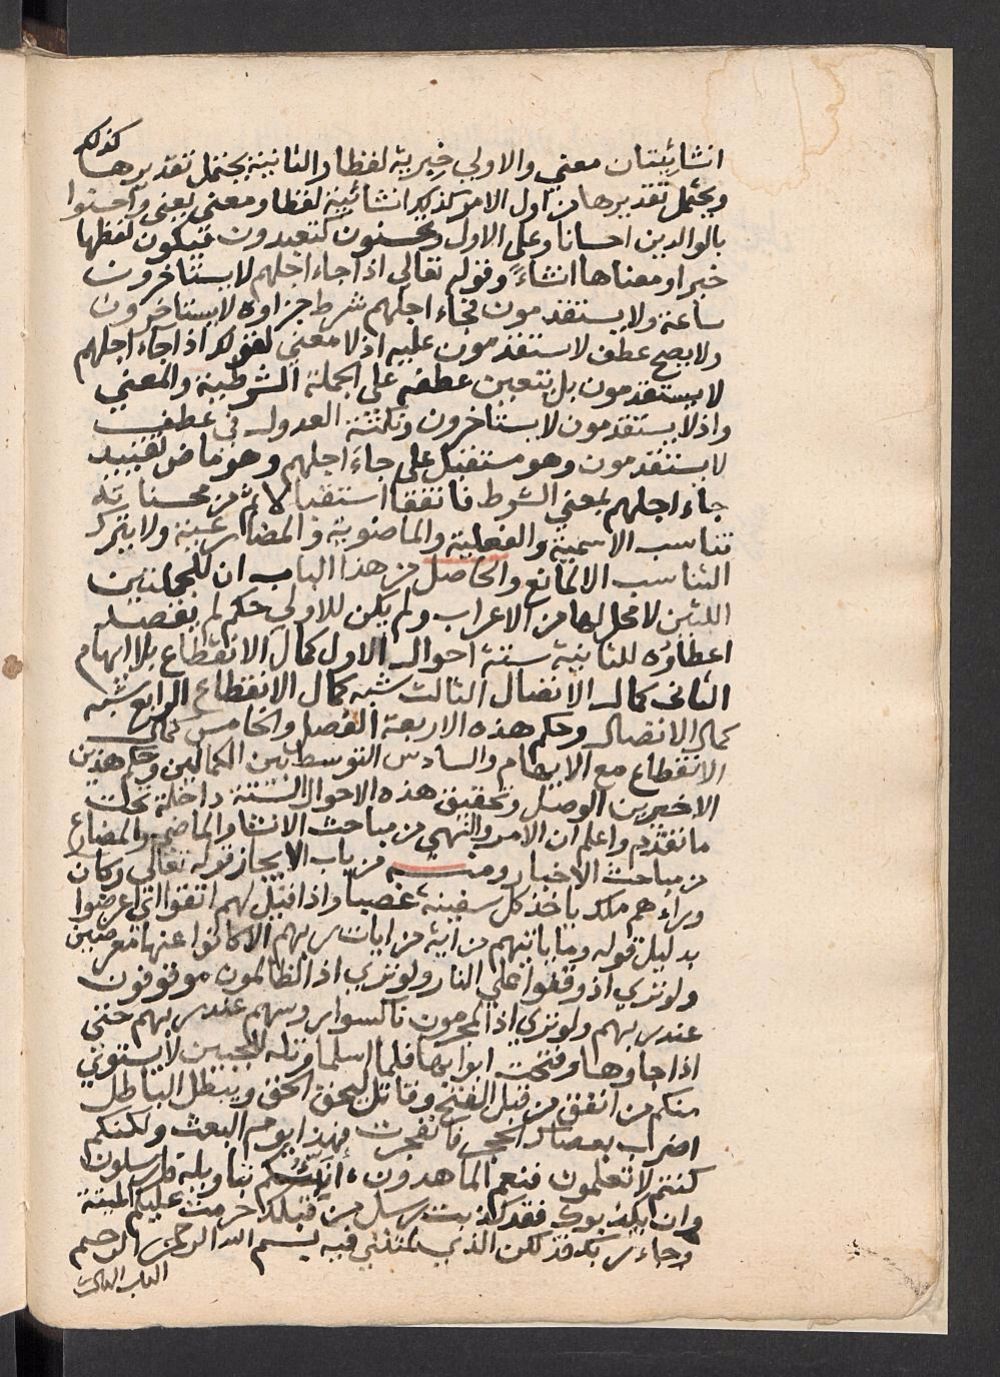 انشائيتان معني والاولي خبرية لفظا والثانية يحتمل تقديرها كذلك
ويحتمل تقديرها من اول الامر كذلك انشائية لفظا ومعني يعني واحسنوا
بالوالدين احسانا وعلي الاول وتحسنون كتعبدون فتكون لفظها
خبرا ومعناها انشاءً وقوله تعالى اذا جاء اجلهم لا يستاخرون
ساعة ولا يستقدمون فجاء اجلهم شرط جزاوه لا يستاخرون
ولا يصح عطف لا يستقدمون عليه اذ لا معني لقولك اذا جاء اجلهم
لا يستقدمون بل يتعين عطفه على الجملة الشرطية والمعني
واذ لا يستقدمون لا يستاخرون ونكتة العدول في عطف
لا يستقدمون وهو مستقبل على جاء اجلهم وهو ماض تقييد
جاء اجلهم بمعني الشرط فاتفقا استقبالا ثم من محسناته
تناسب الاسمية والفعلية والماضوية والمضارعية ولا يترك
التناسب الا لمانع والحاصل من هذا الباب ان للجملتين
اللتين لا محل لها من الاعراب ولم يكن للاولي حكم لم يقصد
اعطاوه للثانية ستة احوال الاول كمال الانقطاع بلا ايهام
الثانى كمال الاتصال الثالث شبه كمال الانقطاع الرابع شبه
كمال الاتصال وحكم هذه الاربعة الفصل والخامس كمال
الانقطاع مع الايهام والسادس التوسط بين الكمالين وحكم هذين
الاخيرين الوصل وتحقيق هذه الاحوال الستة داخلة تحت
ما تقدم واعلم ان الامر والنهي من مباحث الانشا والماضي والمضارع
من مباحث الاخبار ومنه من باب الايجاز قوله تعالي وكان
وراءهم ملك ياخذ كل سفينة غصبا واذا قيل لهم اتقوا اي اعرضوا
بدليل قوله وما ياتيهم من آية من ايات ربهم الا كانوا عنها معرضين
ولو تري اذ وقفوا علي النار ولو تري اذ الظالمون موقوفون
عند ربهم ولو تري اذ المجرمون ناكسوا روسهم عند ربهم حتى
اذا جاوها وفتحت ابوابها فلما اسلما وتله للجبين لا يستوي
منكم من انفق من قبل الفتح وقاتل ليحق الحق ويبطل الباطل
اضرب بعصاك الحجر فانفجرت فهذا يوم البعث ولكنكم
كنتم لا تعلمون فنعم الماهدون، انا انبئكم بتاويله فارسلون
وان يكذبوك فقد كذبت رسل من قبلك حرمت عليكم الميتة
وجاء ربك فذلكن الذي لمتنني فيه بسم الله الرحمن الرحيم
الباب الثالث